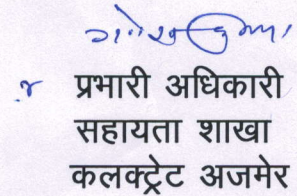 प्रभारी अधिकारी
सहायता शाखा
कलक्ट्रेट अजमेर